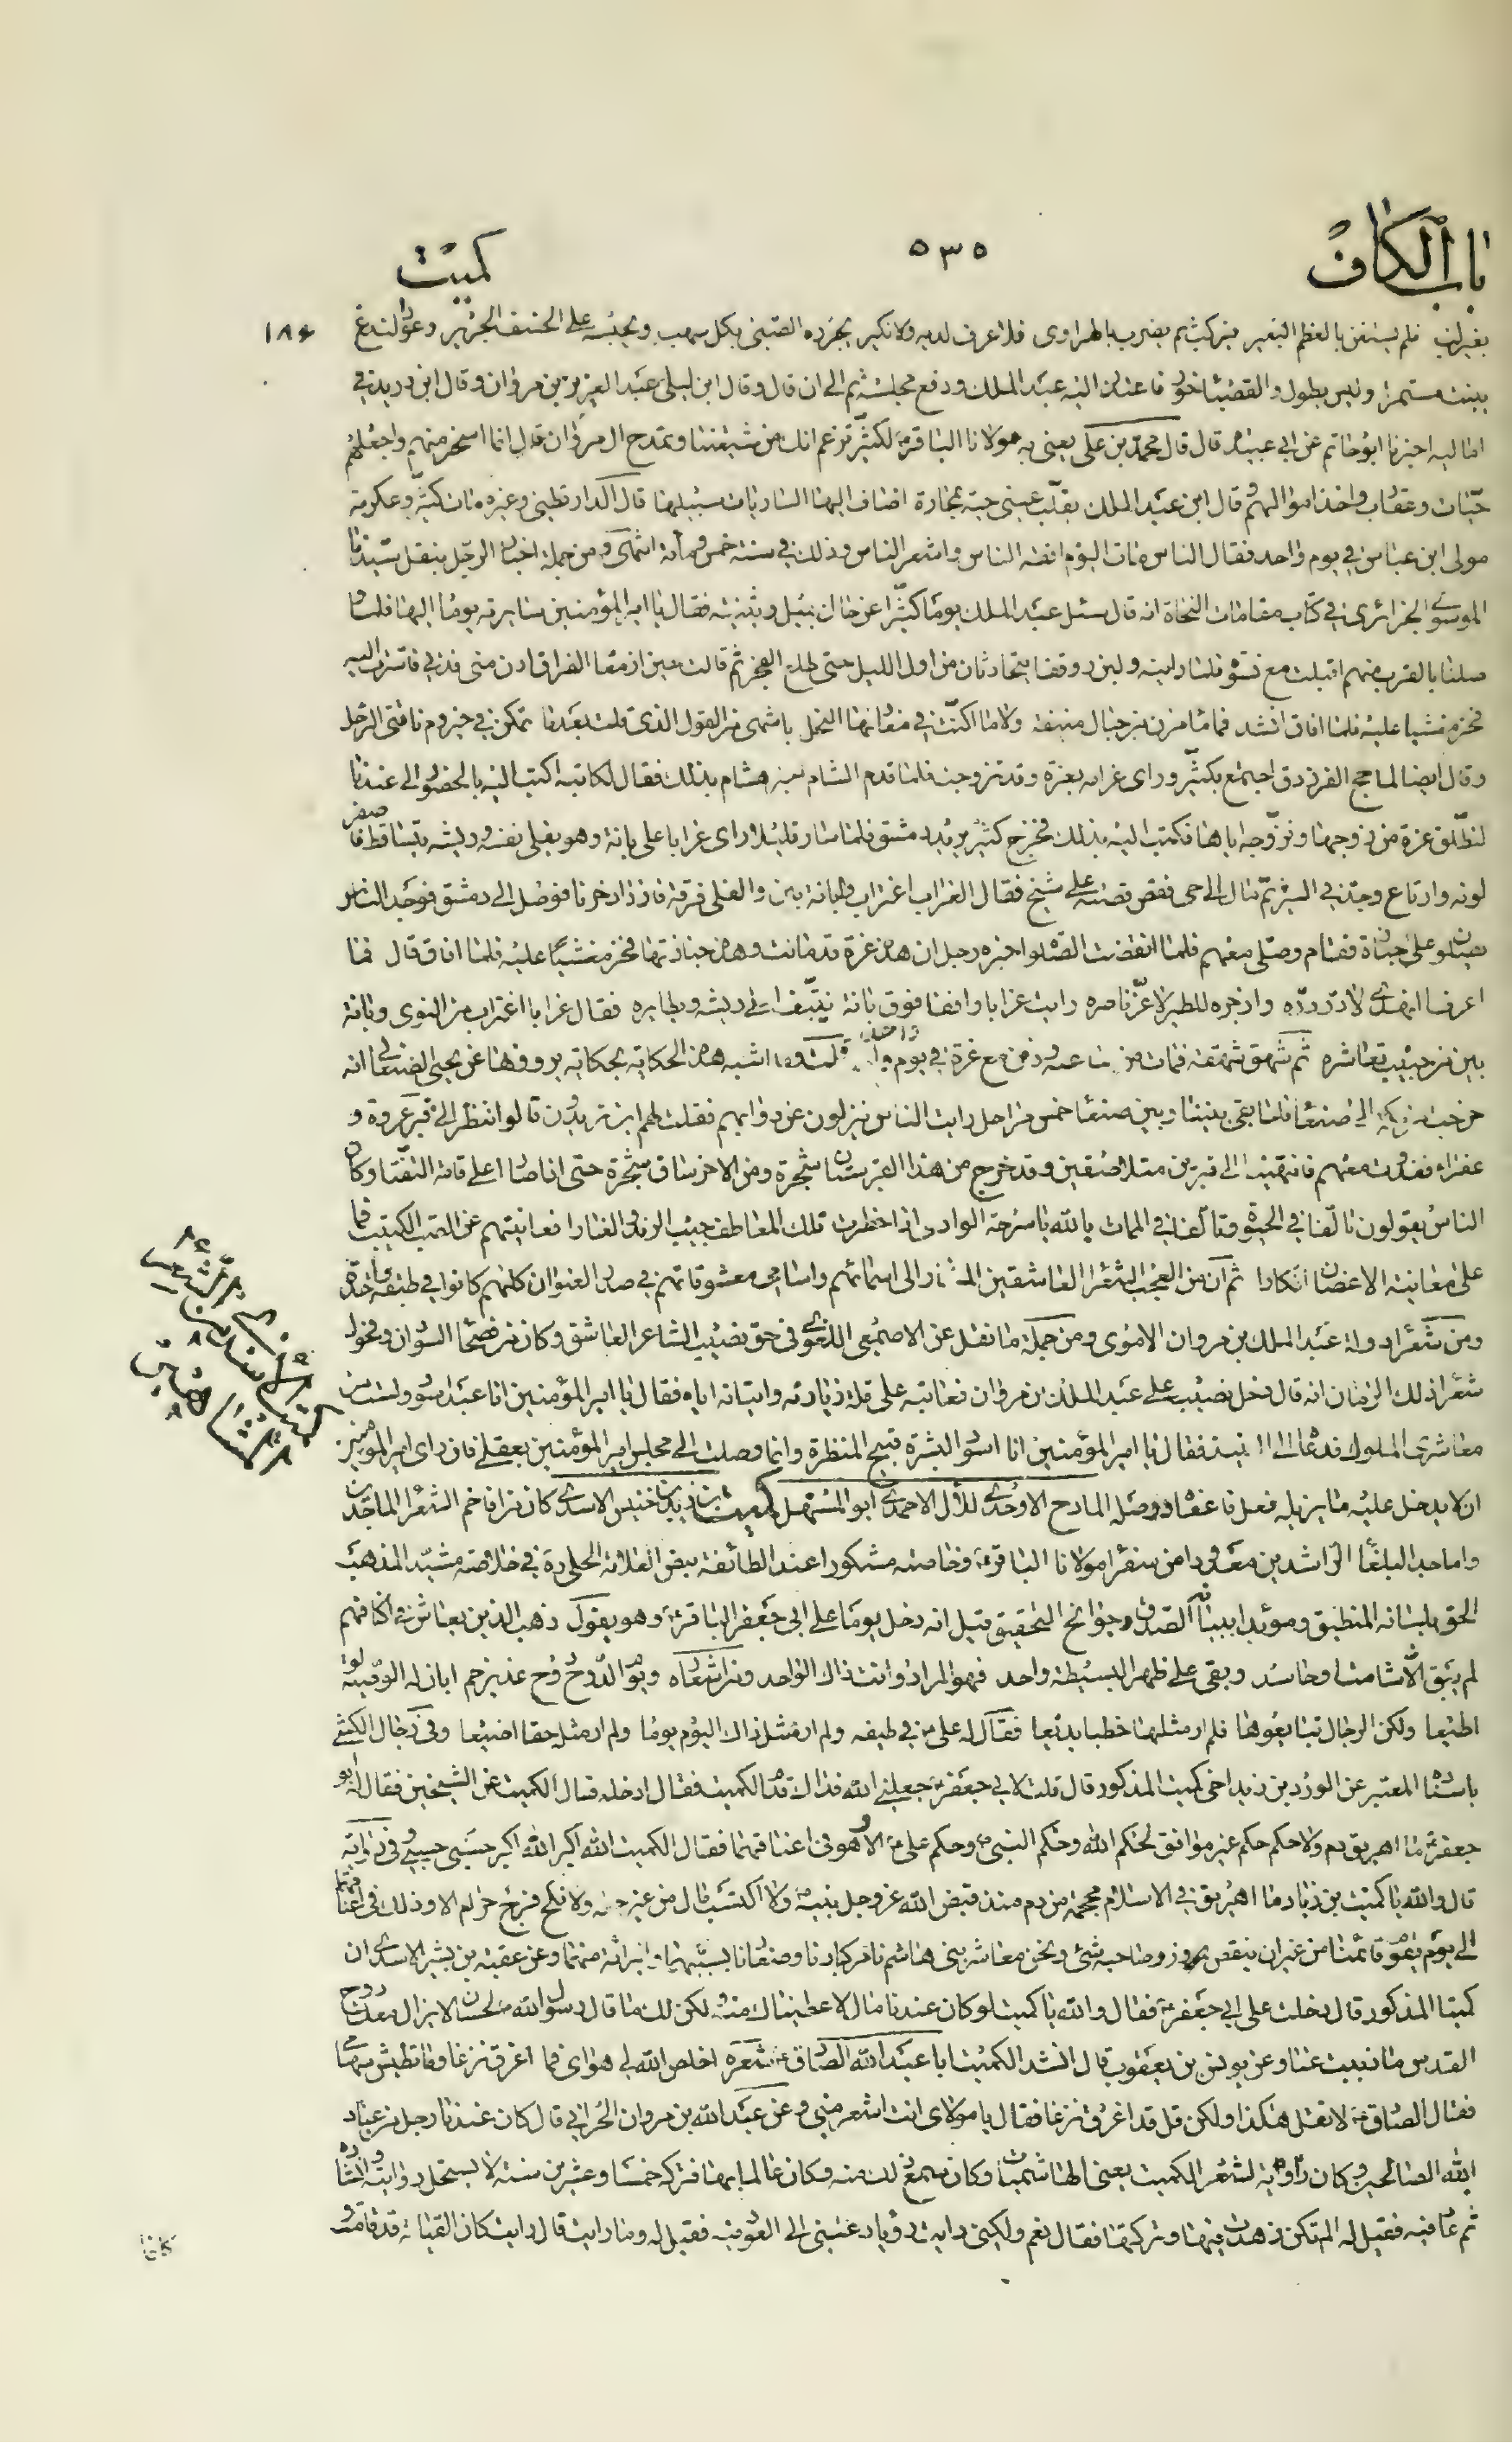 باب الكاف
٥٣٥
كميت
بغير لب فلم يستغن بالعظم البعير يركب ثم يضرب بالهراوى فلا عرف لديه ولا نكير يجرره الصبي بكل سهب ويحبسه على الخسف الجرير وعود النبع
ينبت مستمرا وليس يطول والقصباء خور فاعتذر اليه عبد الملك ورفع مجلسه ثم الى ان قال وقال ابن ليلى عبد العزيز بن مروان وقال ابن دريد في
اماليه اخبرنا ابو حاتم عن ابي عبيدة قال قال محمد بن علي يعني به مولانا الباقر لكثير تزعم انك من شيعتنا وتمدح ال مروان قال انما اسخر منهم واجعلهم
حيات وعقارب واخذ اموالهم قال ابن عبد الملك يقلب عيني حية بمحارة اضاف اليها الساريات سبيلها قال الدارقطني وغيره مات كثير وعكرمة
مولى ابن عباس في يوم واحد فقال الناس مات اليوم افقه الناس واشعر الناس وذلك في سنة خمس ومأة انتهى ومن جملة اخبار الرجل بنقل سيدنا
الموسوي الجزائري في كتاب مقامات النجاة انه قال سئل عبد الملك يوما كثيرا عن حال جميل وبثينة فقال يا امير المؤمنين سايرته يوما اليها فلما
صلنا بالقرب منهم اقبلت مع نسوة فلما راينه ولين ووقفا يتحادثان من اول الليل حتى طلع الفجر ثم قالت حين ازمعا الفراق ادن مني فدنى فاسرت اليه
فخر مغشيا عليه فلما افاق انشد فما ماء مزن من جبال منيفة ولا ما اكنت في معادنها النحل باشهى من القول الذي قلت بعدما تمكن في حيزوم ناقتي الرحل
وقال ايضا لما حج الفرزدق اجتمع بكثير وراى غرامه بعزة وقد تزوجت فلما قدم الشام اخبر هشام بذلك فقال لكاتبه اكتب اليه بالحضور الى عندنا
لنطلق عزة من زوجها ونزوجه اياها فكتب اليه بذلك فخرج كثير يريد دمشق فلما سار قليلا راى غرابا على بانة وهو يفلي نفسه وريشه يتساقط فاصفر
لونه وارتاع وجد في السير ثم مال الى حي فقص قصته على شيخ فقال الغراب اغتراب والبانة بين والفلي فرقة فازداد حزنا فوصل الى دمشق فوجد الناس
يصلون على جنازة فقام وصلى معهم فلما انقضت الصلوة اخبره رجل ان هذه عزة قد ماتت وهذه جنازتها فخر مغشيا عليه فلما افاق قال فما
اعرف النهدي لا در دره وازجره للطير لا عز ناصره رايت غرابا واقفا فوق بانة ينتف اعلى ريشه ويطايره فقال غراب اغتراب من النوى وبانة
بين من حبيب تعاشره ثم شهق شهقة فمات من ساعته ودفن مع عزة في يوم واحد قلت وما اشبه هذه الحكاية بحكاية يروونها عن يحيى الصنعاني انه
خرجت من مكة الى صنعاء فلما بقي بيننا وبين صنعاء خمس مراحل رايت الناس ينزلون عن دوابهم فقلت لهم اين تريدون قالوا ننظر الى قبر عروة و
عفراء فغدوت معهم فانتهينا الى قبرين متلاصقين وقد خرج من هذا القبر ساق شجرة ومن الاخر ساق شجرة حتى اذا صارا على قامة التفتا وكان
الناس يقولون تالفا في الحيوة وتالفا في الممات بالله يا سرحة الوادي اذا خطرت تلك المعاطف حيث الرند والغارا فعانقيهم عن الصب الكئيب فما
على معانقة الاغصان انكارا ثم ان من العجب الشعراء العاشقين المشار الى اسمائهم واسامي معشوقاتهم في صدر العنوان كلهم كانوا في طبقة واحدة
ومن شعراء دولة عبد الملك بن مروان الاموي ومن جملة ما نقل عن الاصمعي اللغوي في حق نصيب الشاعر العاشق وكان من فصحاء السودان وفحول
شعراء ذلك الزمان انه قال دخل نصيب على عبد الملك بن مروان فعاتبه على قلة زيارته واتيانه اياه فقال يا امير المؤمنين انا عبد اسود ولست من
معاشري الملوك فدعاه الى النبيذ فقال يا امير المؤمنين انا اسود البشرة قبيح المنظرة وانما وصلت الى مجلس امير المؤمنين بعقلي فان راى امير المؤمنين
ان لا يدخل عليه ما يزيله فعل فاعفاه ووصله المادح الاوحدي للآل الاحمدي ابو المستهل كميت بن زيد بن خنيس الاسدي كان من افاخم الشعراء الماجدين
واماجد البلغاء الراشدين معدودا من سفراء مولانا الباقر وخاصته مشكورا عند الطائفة بنص العلامة الحلي ره في خلاصته مشيد المذهب
الحق بلسانه المنطبق ومؤيدا ببيانه الصدق وجوانح التحقيق قيل انه دخل يوما على ابي جعفر الباقر وهو يقول ذهب الذين يعاش في اكنافهم
لم يبق الا شامت او حاسد وبقي على ظهر البسيطة واحد فهو المراد وانت ذاك الواحد ومن اشعاره ويوم الدوح دوح غدير خم ابان له الولاية لو
اطيعا ولكن الرجال تبايعوها فلم ار مثلها خطبا بديعا فقال له علي في طيفه ولم ار مثل ذاك اليوم يوما ولم ار مثله حقا اضيعا وفي رجال الكشي
باسناده المعتبر عن الورد بن زيد اخي كميت المذكور قال قلت لابي جعفر جعلني الله فداك قدم الكميت فقال ادخله فسال الكميت عن الشيخين فقال له ابو
جعفر ما اهريق دم ولا حكم حكم غير موافق لحكم الله وحكم النبي وحكم علي الا وهو في اعناقهما فقال الكميت الله اكبر الله اكبر حسبي حسبي وفي رواية
قال والله يا كميت بن زياد ما اهريق في الاسلام محجمة من دم منذ قبض الله عز وجل نبيه ولا اكتسب مال من غير حله ولا نكح فرج حرام الا وذلك في اعناقهما
الى يوم يقوم قائمنا من غير ان ينقص من وزر صاحبه شئ ونحن معاشر بني هاشم نامر كبارنا وصغارنا بسبهما والبرائة منهما وعن عقبة بن بشير الاسدي ان
كميتا المذكور قال دخلت على ابي جعفر فقال والله يا كميت لو كان عندنا مال لاعطيناك منه ولكن لك ما قال رسول الله لحسان لا يزال معك روح
القدس ما ذببت عنا وعن يونس بن يعقوب قال انشد الكميت ابا عبد الله الصادق شعره اخلص الله لي هواي فما اغرق نزعا وما تطيش سهامي
فقال الصادق لا تقل هكذا ولكن قل قد اغرق نزعا فقال يا مولاي انت اشعر مني وعن عبد الله بن مروان الحراني قال كان عندنا رجل من عباد
الله الصالحين وكان راوية لشعر الكميت يعني الهاشميات وكان سمع ذلك منه وكان عالما بها فتركه خمسا وعشرين سنة لا يستحل روايته وانشاده
ثم عاد فيه فقيل له الم تكن زهدت فيها وتركتها فقال نعم ولكني رايت رؤيا دعتني الى العود فيه فقيل له وما رايت قال رايت كان القيامة قد قامت